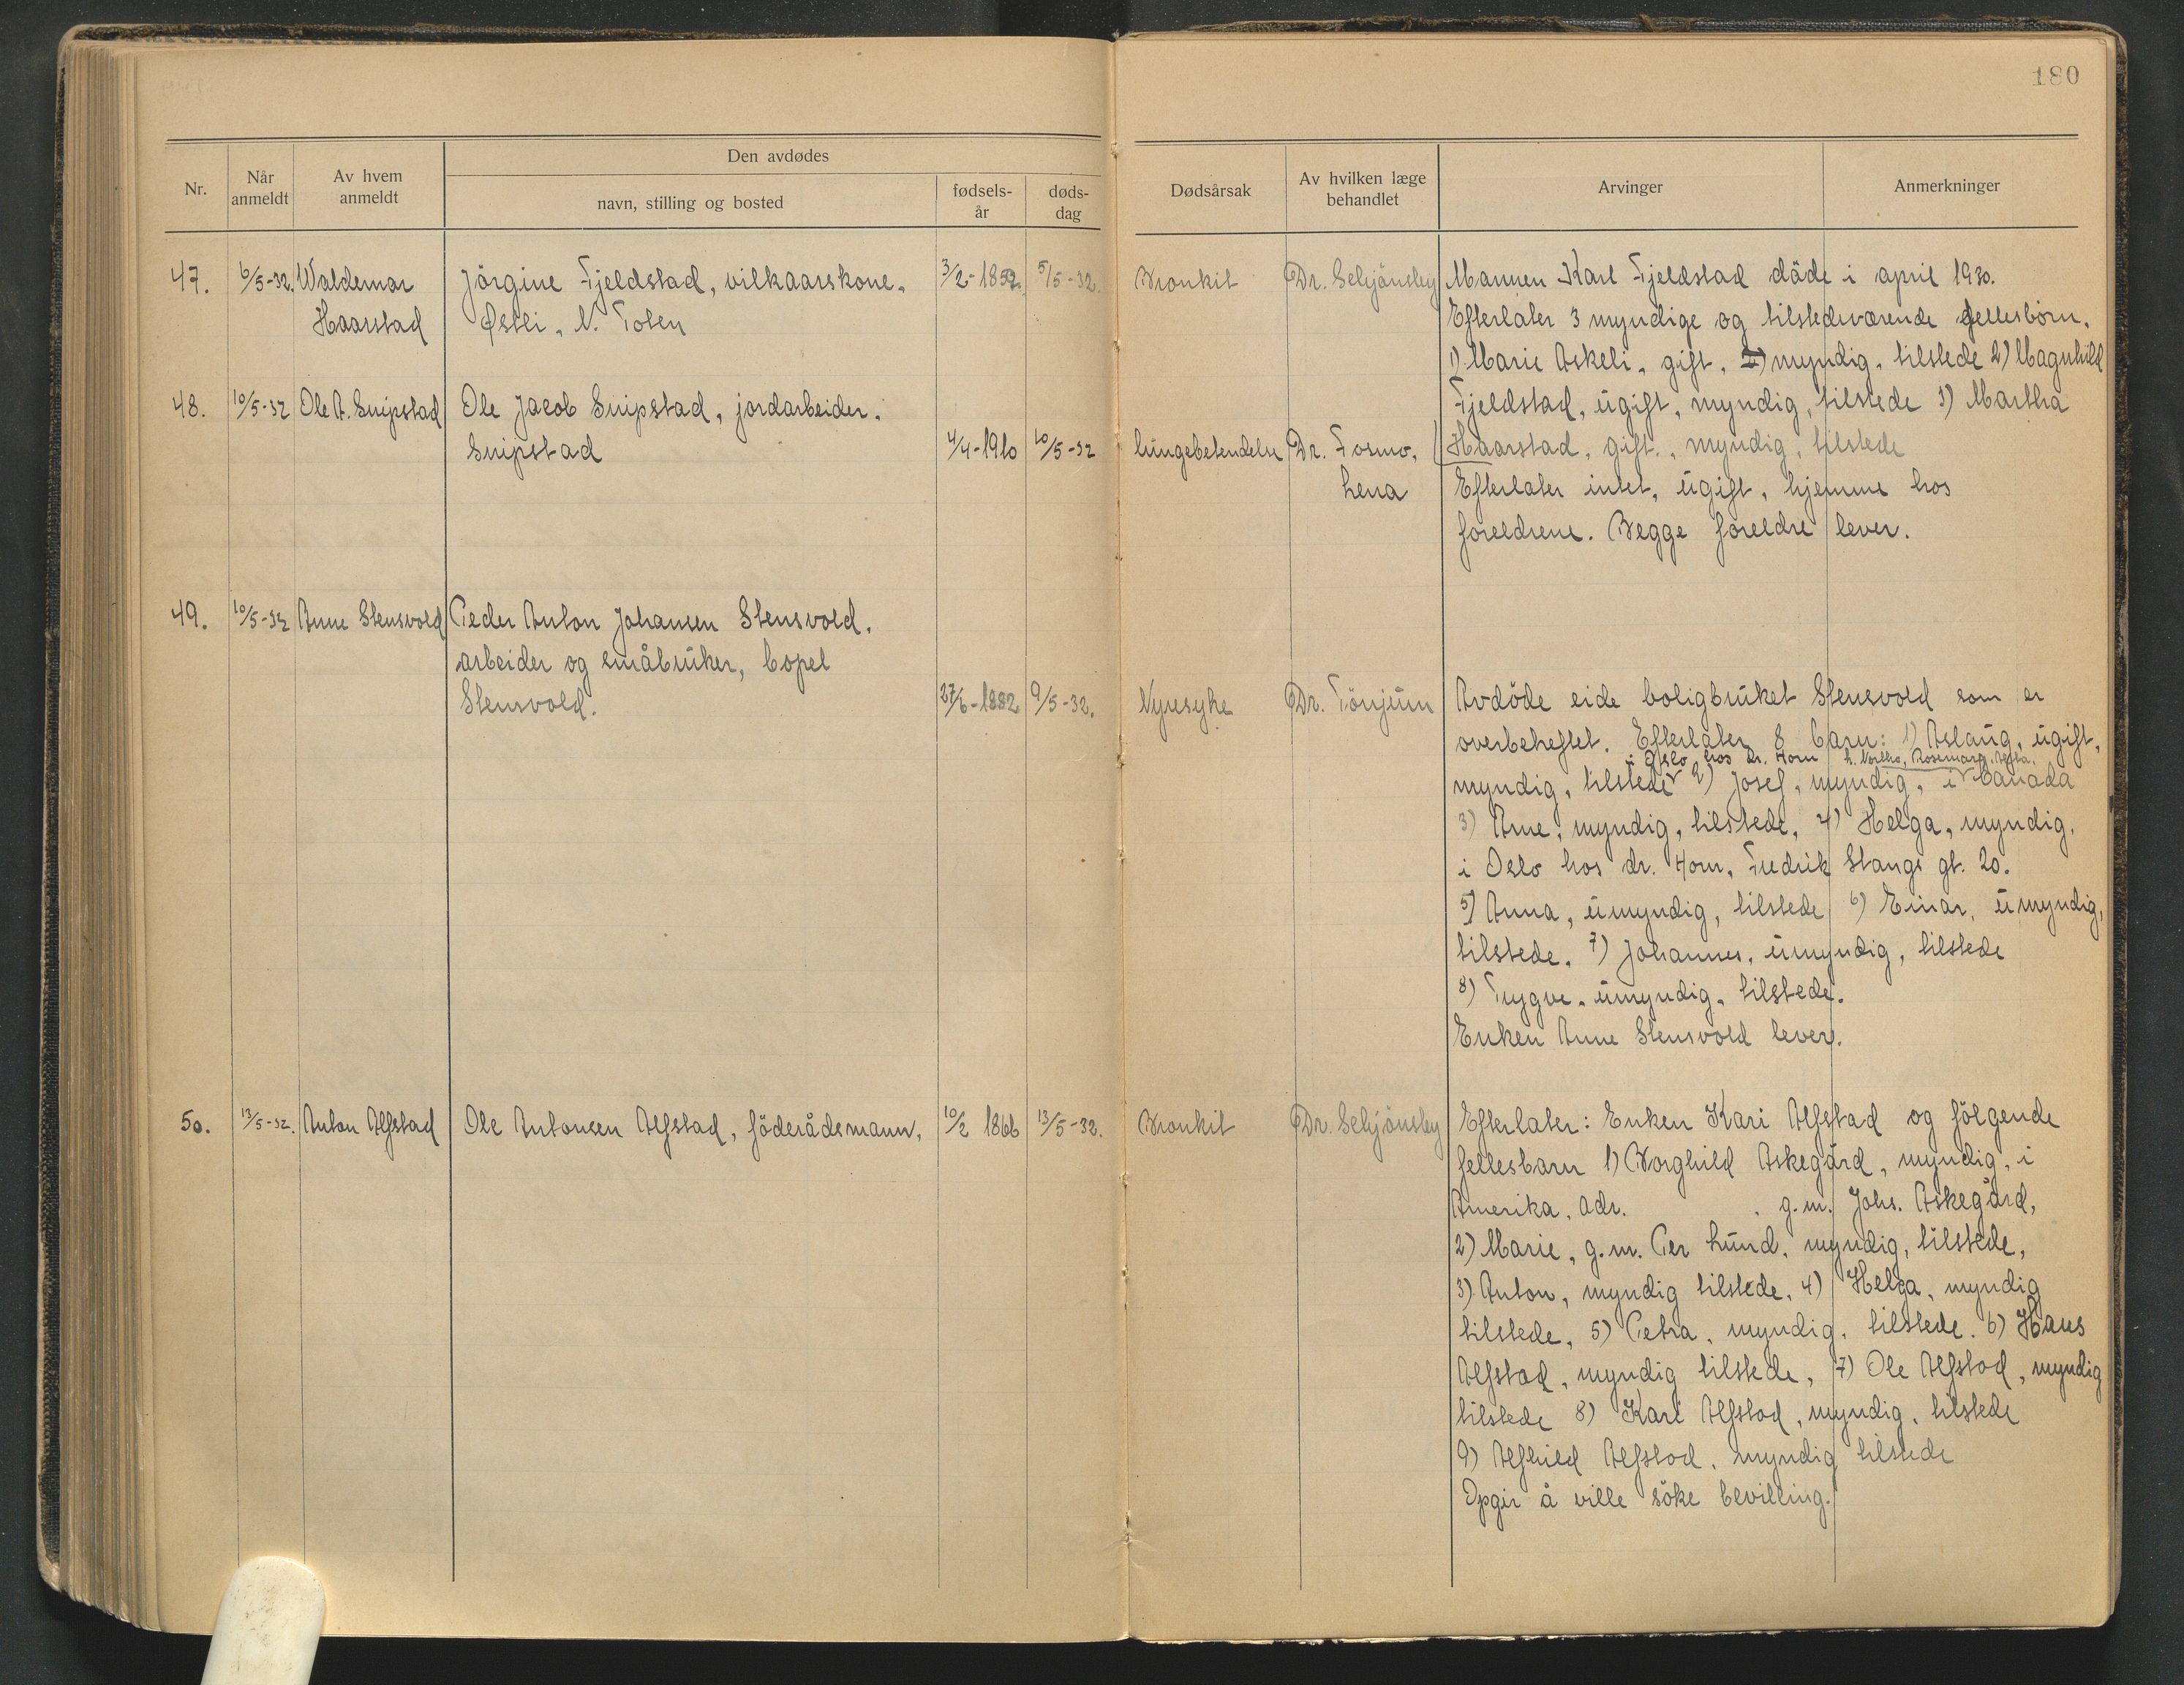 180
Nr.
Når anmeldt
Av hvem anmeldt
Den avdødes
navn, stilling og bosted
fødsels-år
døds-dag
Dødsårsak
Av hvilken læge behandlet
Arvinger
Anmerkninger
47. 6/5-32. Waldemar Jörgine Fjeldstad, vilkaarskone, 3/2-1852. 5/5-32. Bronkit Dr. Seljönsley Mannen Karl Fjeldstad döde i april 1930.
Haarstad Østli, N. Toten Efterlater 3 myndige og tilstedeværende fellesbörn.
1) Marie Askeli, gift, myndig, tilstede 2) Magnhild
48. 10/5-32 Ole A. Snipstad Ole Jacob Snipstad, jordarbeider. Fjeldstad, ugift, myndig, tilstede 3) Martha
Snipstad 4/4-1910 10/5-32 Lungebetendelse Dr. Fosmo, Haarstad, gift, myndig, tilstede
Lena Efterlater intet, ugift, hjemme hos
foreldrene. Begge foreldre lever.
49. 10/5-32 Anne Stensvold Peder Anton Johansen Stensvold.
arbeider og småbruker, bopel
Stensvold. 27/6-1882 9/5-32. Nyresyke Dr. Tönjum Avdöde eide boligbruket Stensvold som er
overbeheftet. Efterlater 8 barn: 1) Aslaug, ugift,
i Oslo hos dr. Horn
myndig, tilstede 2) Josef, myndig, i Canada
3) Arne, myndig, tilstede, 4) Helga, myndig,
i Oslo hos dr. Horn, Fredrik Stangs gt. 20.
5) Anna, umyndig, tilstede 6) Einar, umyndig,
tilstede. 7) Johannes, umyndig, tilstede
8) Trygve, umyndig, tilstede.
Enken Anne Stensvold lever.
50. 13/5-32. Anton Alfstad Ole Antonsen Alfstad, föderådsmann, 10/2 1866 13/5-32. Bronkit Dr. Seljönsley Efterlater: Enken Kari Alfstad og fölgende
fellesbarn 1) Borghild Askegård, myndig, i
Amerika, adr. , g.m. Johs. Askegård,
2) Marie, g.m. Per Lund, myndig, tilstede,
3) Anton, myndig tilstede, 4) Helga, myndig
tilstede, 5) Petra, myndig, tilstede. 6) Hans
Alfstad, myndig tilstede, 7) Ole Alfstad, myndig
tilstede 8) Kari Alfstad, myndig, tilstede
9) Alfhild Alfstad, myndig tilstede
Opgir å ville söke bevilling.